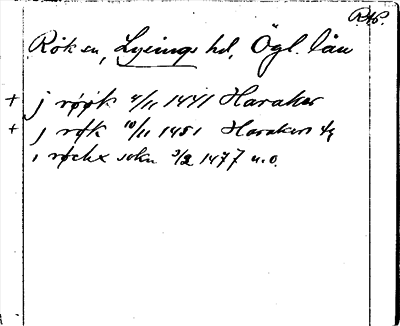 RAp.
Rök sn, Lysings hd, Ögl. län
+ j røøk 4/11 1441 Haraker
+ j røk 10/11 1451 Harakers
i røchx sokn 3/2 1477 u.o.